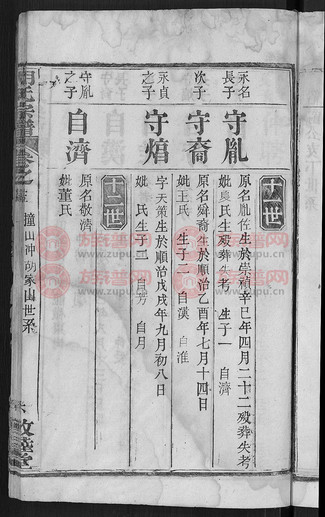 十一世
永名長子
守胤
原名胤佐生於崇禎辛巳年四月二十二歿葬失考
妣農氏生歿葬失考 生子一 自濟
次子
守裔
原名舜裔生於順治乙酉年七月十四日
妣王氏 生子二 自漢 自淮
永貞之子
守熺
字天策生於順治戊戌年九月初八日
妣 氏生子二 自芳 自月
十二世
守胤之子
自濟
原名敬濟
妣董氏
胡氏宗譜
卷之
撞山冲胡家山世系
六
敦睦堂
族譜网
www.zupu.cn